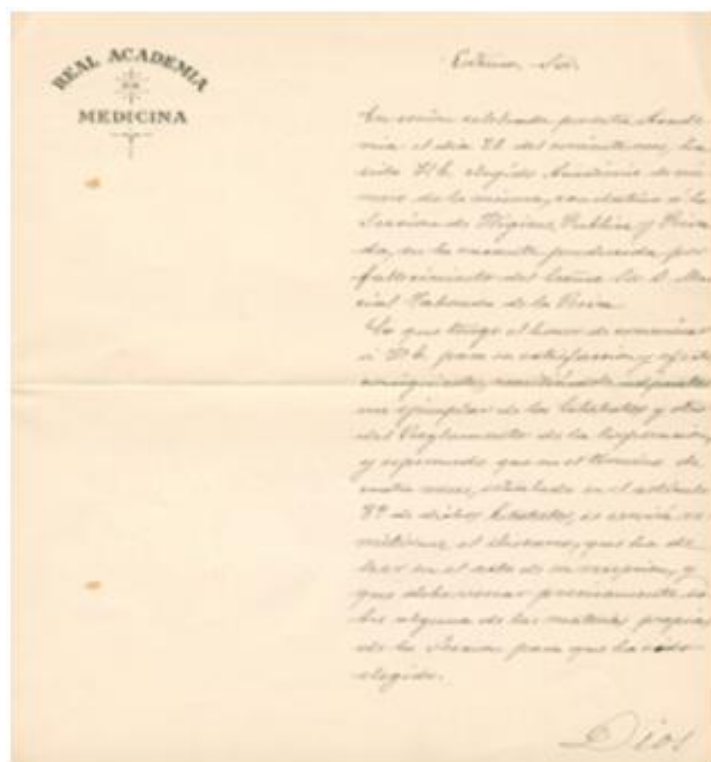 REAL ACADEMIA
DE
MEDICINA
Excmo. Sor.
En sesión celebrada por esta Acade
mia el dia 28 del corriente mes, ha
sido V.E. elegido Académico de nú
mero de la misma, con destino á la
Sección de Higiene Publica y Priva
da, en la vacante producida por
fallecimiento del Excmo Sr. D. Mar
cial Taboada de la Riva.
Lo que tengo el honor de comunicar
á V.E. para su satisfacción y efectos
consiguientes, remitiéndole adjuntos
un ejemplar de los Estatutos y otro
del Reglamento de la Corporación,
y esperando que en el término de
cuatro meses, señalado en el artículo
8º de dichos Estatutos, se servirá re
mitirme el discurso, que ha de
leer en el acto de su recepción, y
que debe versar precisamente so
bre alguna de las materias propias
de la Sección para que ha sido
elegido.
Dios